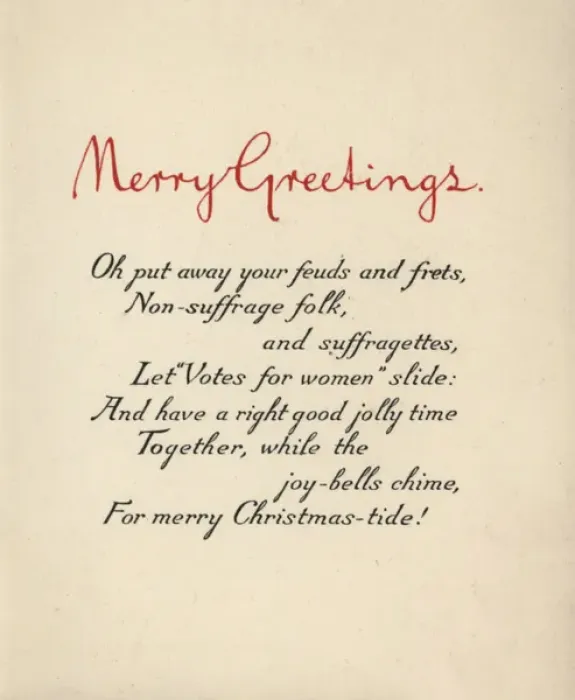 Merry Greetings.
Oh put away your feuds and frets,
Non-suffrage folk,
and suffragettes,
Let "Votes for women" slide:
And have a right good jolly time
Together, while the
joy-bells chime,
For merry Christmas-tide!